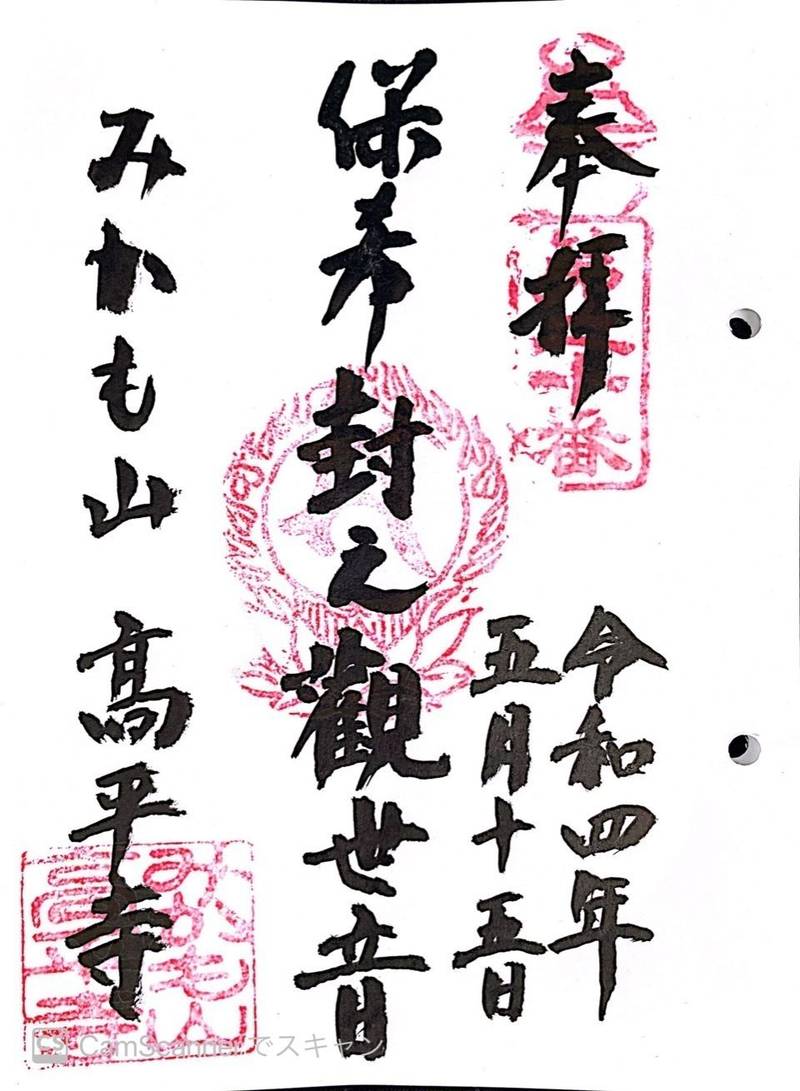 奉拝
令和四年
五月十五日
保寿封之觀世音
みかも山 高平寺
みかも山
CS CamScannerでスキャン